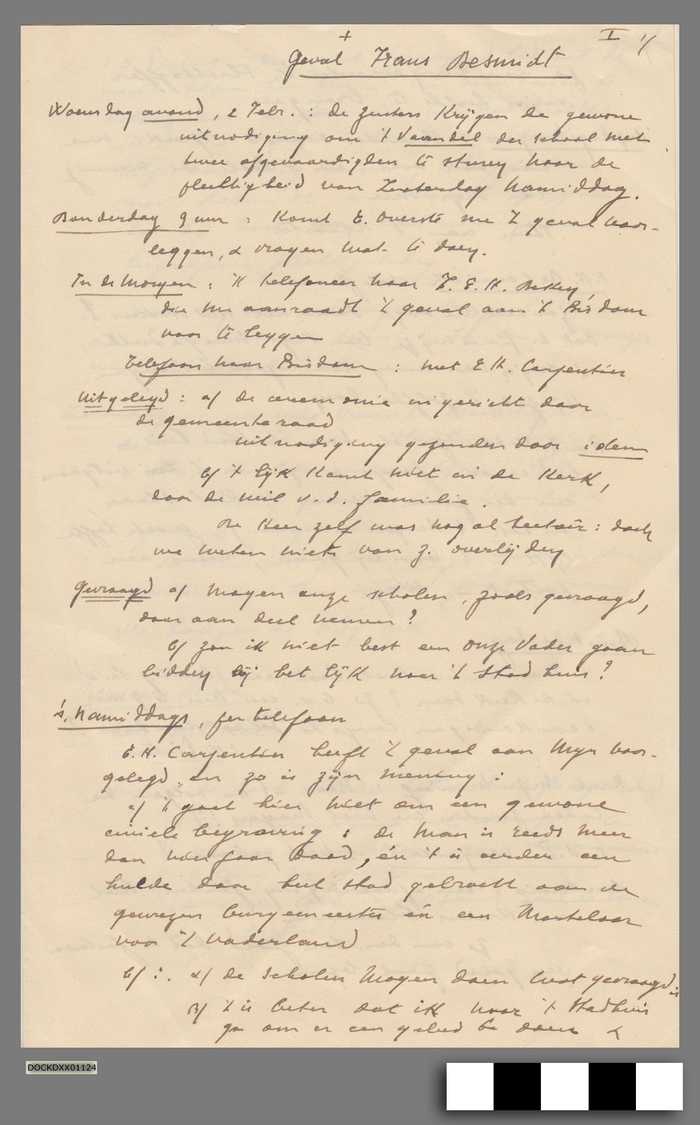 +
I 1/
Geval Frans Besmidt
Woensdag avond, 2 Febr. : de zusters krijgen de gewone
uitnodiging om 't Vaandel der school met
twee afgevaardigden te sturen naar de
plechtigheid van Zaterdag namiddag.
Donderdag 9 uur : komt E. Overste me 't geval voor-
leggen, & vragen wat te doen.
In de morgen : 'k telefoneer naar Z. E. H.
die me aanraadt 't geval aan 't Bisdom
voor te leggen
Telefoon naar Bisdom : met E H. Carpentier
Uitgelegd : a/ de ceremonie ingericht door
de gemeenteraad
uitnodiging gezonden door idem
b/ 't lijk komt niet in de kerk,
door de wil v. d. familie.
De Heer zelf was nog al sectair : doch
we weten niets van z. overlijden
Gevraagd a/ mogen onze scholen, zoals gevraagd,
daar aan deel nemen?
b/ zou ik niet best een Onze Vader gaan
bidden bij het lijk naar 't Stadhuis?
's namiddags, per telefoon
E. H. Carpentier heeft 't geval aan Mgr voor-
gelegd, en zo is zijn mening :
a/ 't gaat hier niet om een gewone
civiele begraving : de man is reeds meer
dan vier jaar dood, én 't is eerder een
hulde door heel stad gebracht aan de
gewezen burgemeester én een Martelaar
voor 't vaderland
b/ : α/ de scholen mogen doen wat gevraagd is
β/ 't is beter dat ik naar 't Stadhuis
ga om er een gebed te doen &
DOCKDXX01124